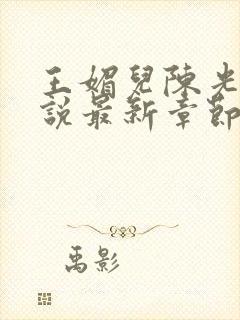 王媚兒陳光
說最新章節
禹影